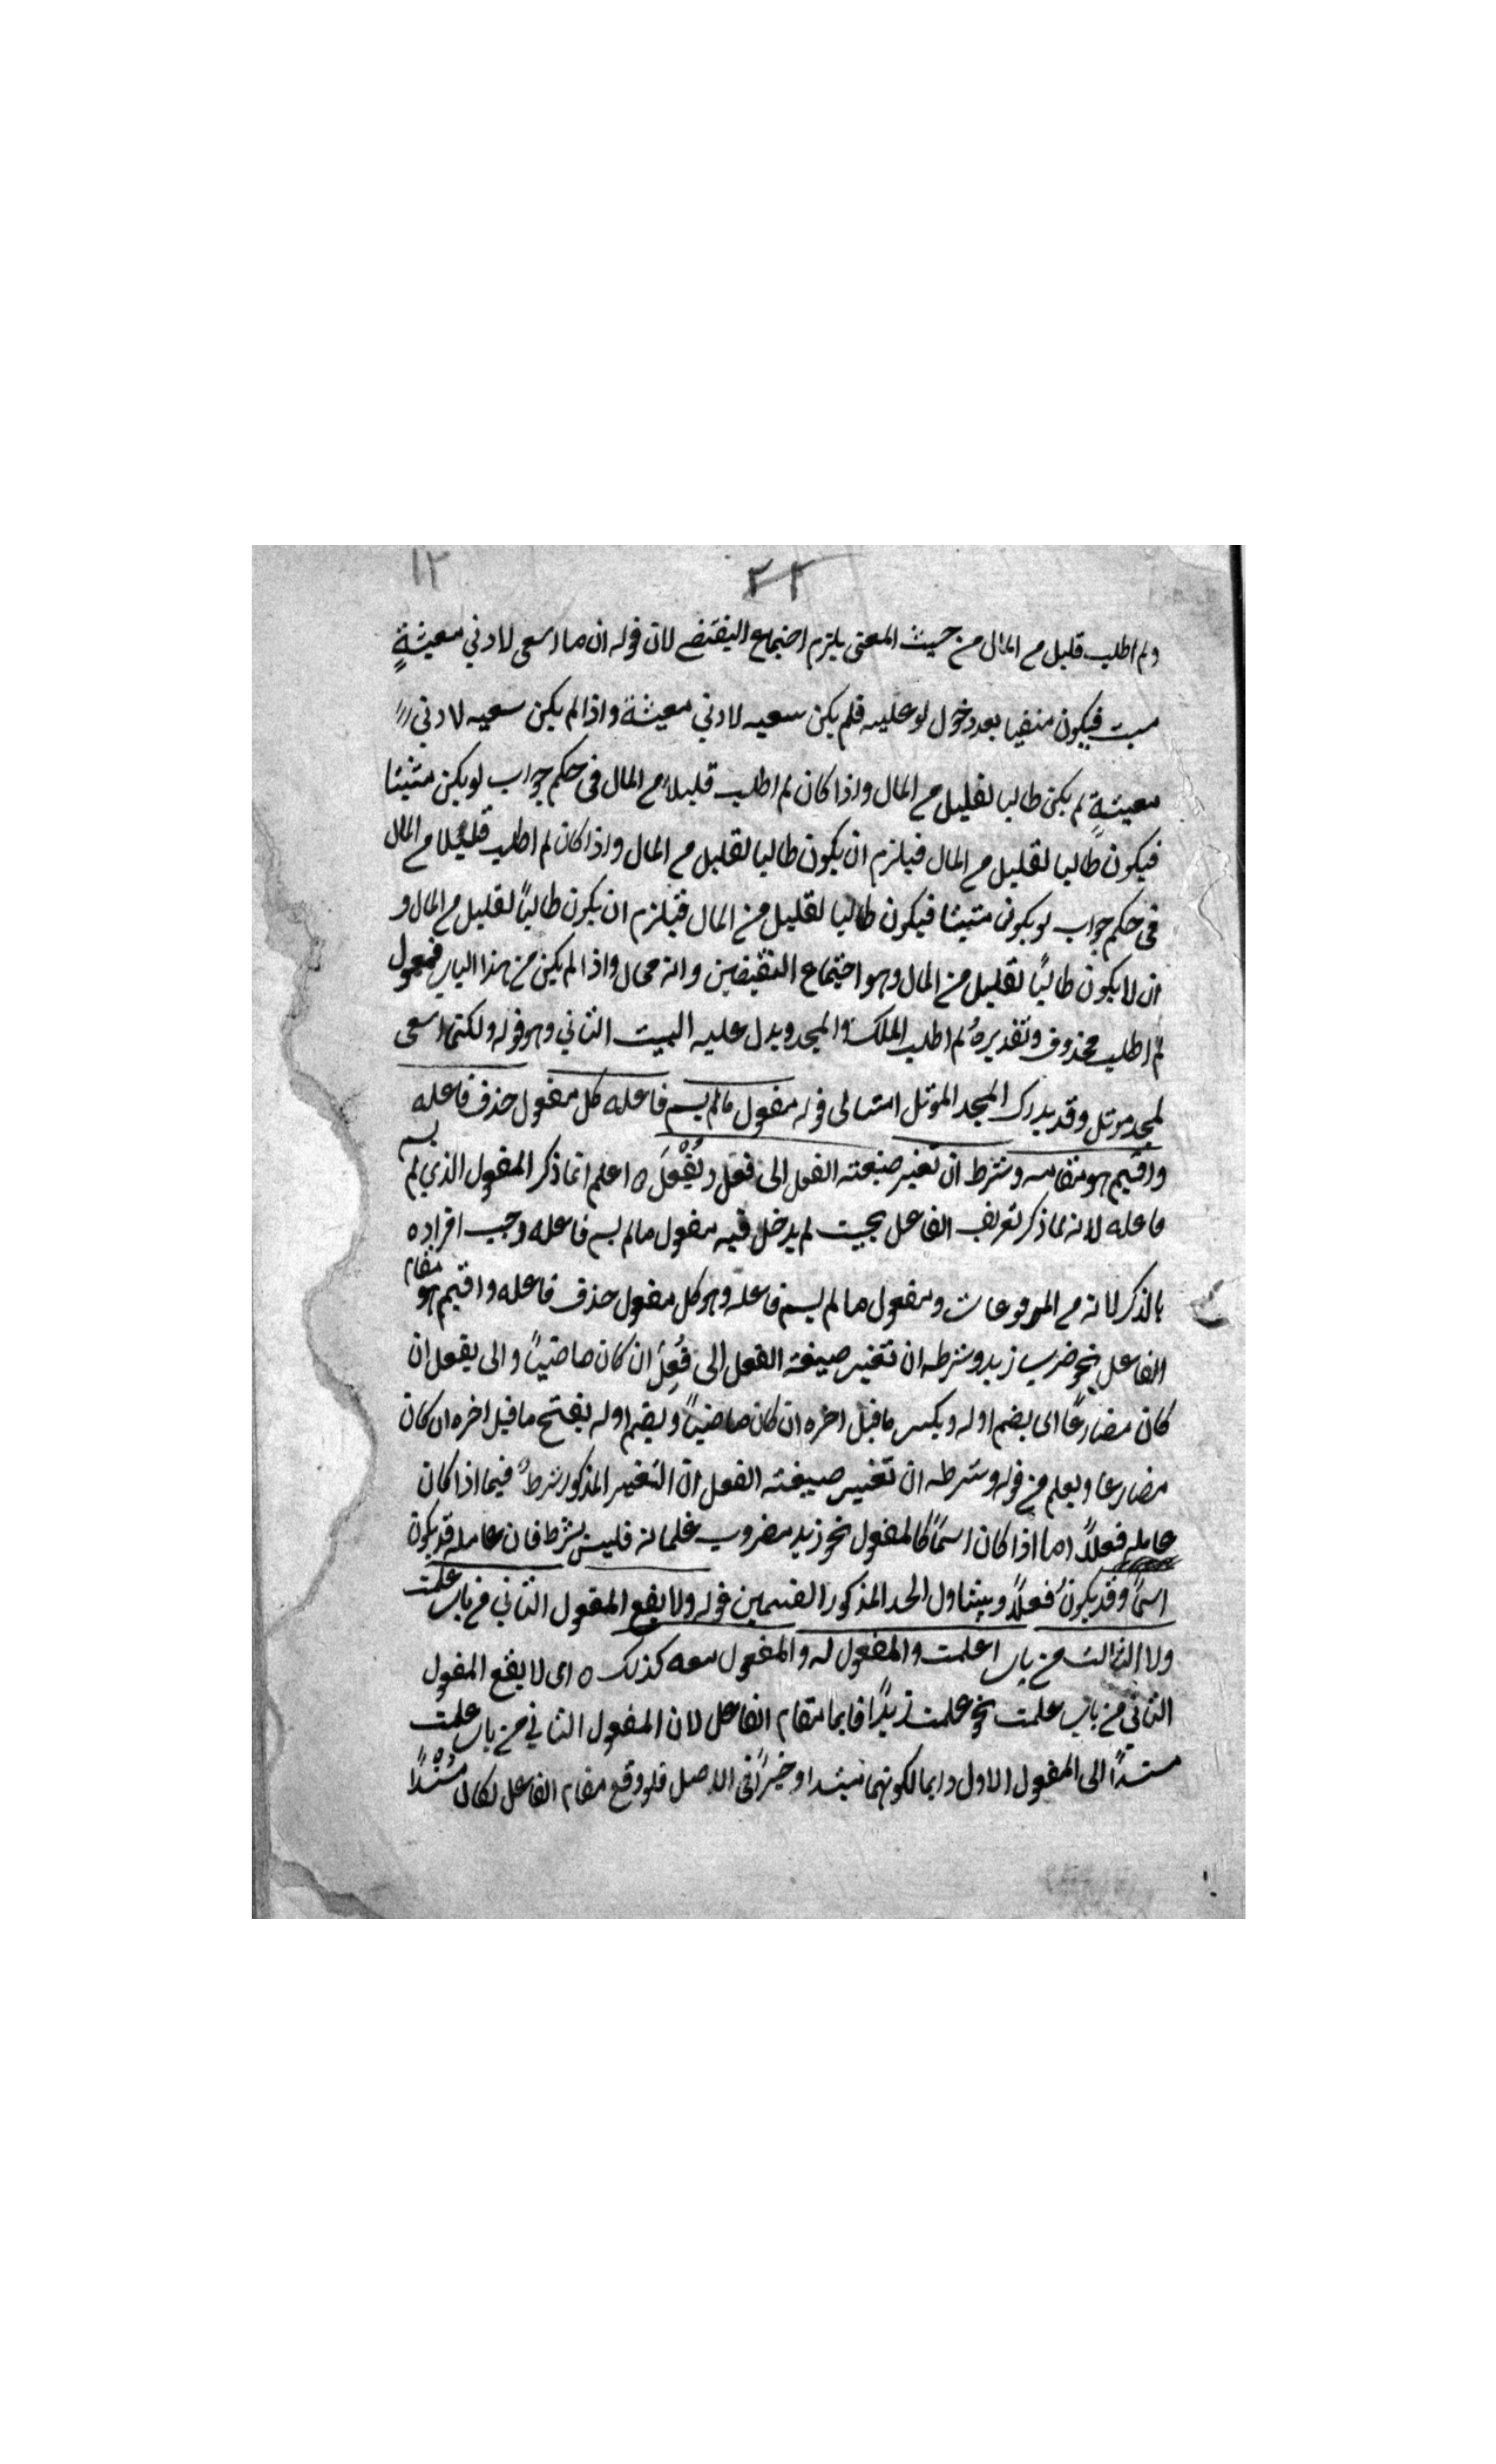 ١٢ ٢٢
ولم اطلب قليل من المال من حيث المعنى يلزم اجتماع النقيضين لان قوله ان ما اسعى لادني معيشةٍ
مثبت فيكون منفيا بعد دخول لو عليه فلم يكن سعيه لادني معيشة واذا لم يكن سعيه لادني
معيشةٍ لم يكن طالبا لقليل من المال واذا كان لم اطلب قليلا من المال في حكم جواب لو يكن مثبتا
فيكون طالبا لقليل من المال فيلزم ان يكون طالبا لقليل من المال واذا كان لم اطلب قليلا من المال
في حكم جواب لو يكون مثبتا فيكون طالبا لقليل من المال فيلزم ان يكون طالباً لقليل من المال و
ان لا يكون طالباً لقليل من المال وهو اجتماع النقيضين وانه محال واذا لم يكن من هذا الباب فمفعول
لم اطلب محذوف وتقديره لم اطلب الملك والمجد ويدل عليه البيت الثاني وهو قوله ولكنما اسعى
لمجد موثل وقد يدرك المجد الموثل امثالي قوله مفعول ما لم يسم فاعله كل مفعول حذف فاعله
واقيم هو مقامه وشرطه ان تغير صيغته الفعل الى فعل ويُفْعَل ه اعلم انما ذكر المفعول الذي لم يسم
فاعله لانه لما ذكر تعريف الفاعل بحيث لم يدخل فيه مفعول ما لم يسم فاعله وجب افراده
بالذكر لانه من المرفوعات ومفعول ما لم يسم فاعله وهو كل مفعول حذف فاعله واقيم هو مقام
الفاعل نحو ضرب زيد وشرطه ان تغير صيغة الفعل الى فُعِلَ ان كان ماضياً والى يفعل ان
كان مضارعاً اى يضم اوله ويكسر ما قبل اخره ان كان ماضياً ويضم اوله يفتح ما قبل اخره ان كان
مضارعا ويعلم من قوله وشرطه ان تغير صيغته الفعل ان التغير المذكور شرط فيما اذا كان
عامله فعلاً اما اذا كان اسماً كالمفعول نحو زيد مضروب غلمانه فليس بشرط فان عامله قد يكون
اسماً وقد يكون فعلاً ويتناول الحد المذكور القسمين قوله ولا يقع المفعول الثاني من باب علمت
ولا الثالث من باب اعلمت والمفعول له والمفعول معه كذلك ه اى لا يقع المفعول
الثاني من باب علمت نحو علمت زيداً قايما مقام الفاعل لان المفعول الثاني من باب علمت
مسنداً الى المفعول الاول دايما لكونهما مبتدا وخبراً في الاصل فلو وقع مقام الفاعل لكان مُسْنَداً